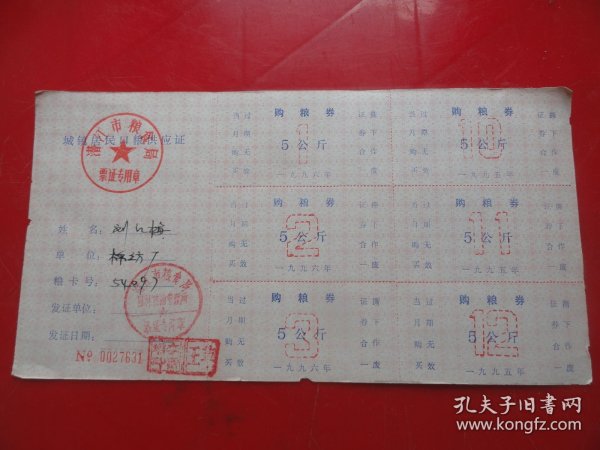 城镇居民口粮供应证
市粮食局
票证专用章
姓 名:
单 位:
粮卡号: 54097
发证单位:
发证日期:
№ 0027631
购粮券
5公斤
1
一九九六年
当月购买
过期无效
证券合一
撕下作废
购粮券
5公斤
10
一九九五年
当月购买
过期无效
证券合一
撕下作废
购粮券
5公斤
2
一九九六年
当月购买
过期无效
证券合一
撕下作废
购粮券
5公斤
11
一九九五年
当月购买
过期无效
证券合一
撕下作废
购粮券
5公斤
3
一九九六年
当月购买
过期无效
证券合一
撕下作废
购粮券
5公斤
12
一九九五年
当月购买
过期无效
证券合一
撕下作废
孔夫子旧书网
www.kongfz.com